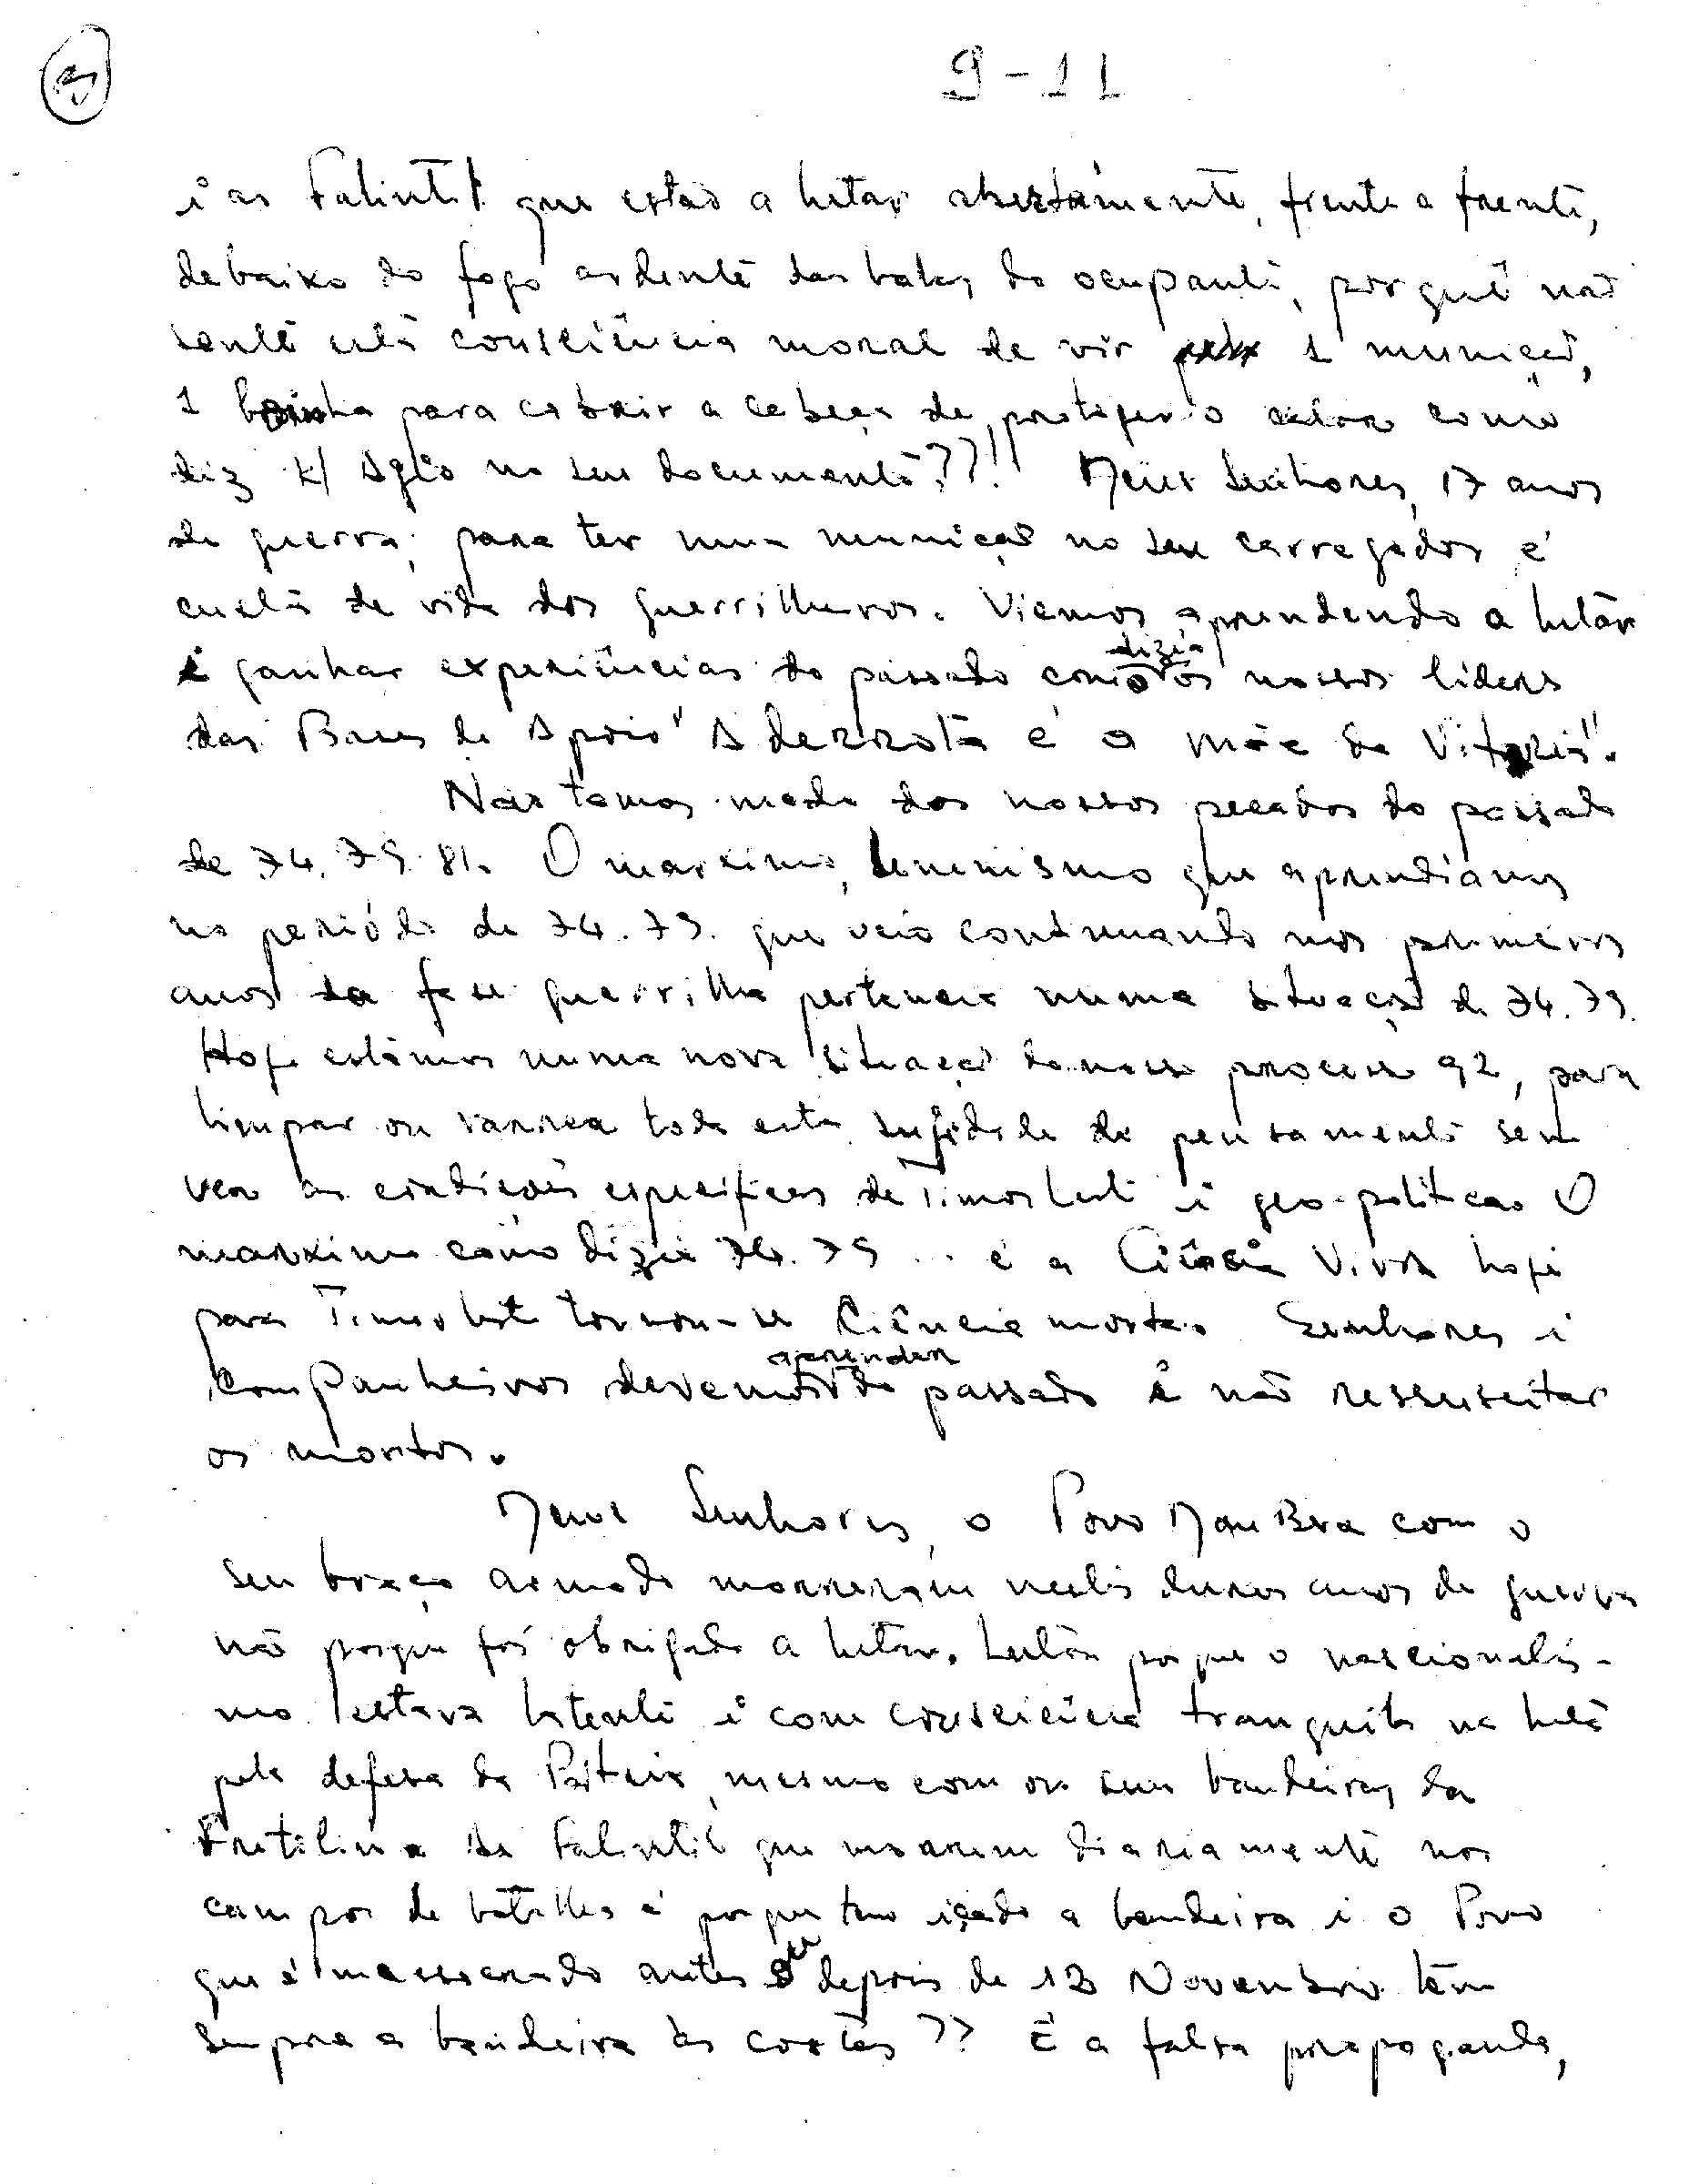 9-11
i as Falintil que estão a lutar abertamente, frente a frente,
debaixo do fogo ardente das balas do ocupante, porquê não
sente esta consciência moral de vir 1 munição,
1 para cobrir a cabeça de proteger o calor como
diz K/ Agio no seu documento??!! Meus Senhores, 17 anos
de guerra, para ter uma munição no seu carregador é
custa de vida dos guerrilheiros. Viemos aprendendo a lutar
e ganhar experiências do passado como dizia os nossos líderes
das Bases de Apoio "A derrota é a mãe da Vitória".
Não temos medo dos nossos pecados do passado
de 74.79.81. O marxismo, leninismo que aprendíamos
no período de 74.79. que veio continuando nos primeiros
anos da fase guerrilha pertencia numa situação de 74.79.
Hoje estamos numa nova situação do nosso processo 92, para
limpar ou varrer toda esta sujidade de pensamento sem
ver as condições específicas de Timor Leste i geo-politicas O
marxismo como dizia 74.79 ... é a Ciência Viva hoje
para Timor Leste tornou-se Ciência morta. Senhores i
Companheiros devemos aprender do passado e não ressuscitar
os mortos.
Meus Senhores, o Povo MauBere com o
seu braço armado morreram nestes duros anos de guerra
não porque foi obrigado a lutar. Lutar porque o nascionalis-
mo estava latente i com consciência tranquila na luta
pela defesa da Pátria, mesmo com ou sem bandeiras da
Fretilin e da Falintil que morrem diariamente nos
campos de batalha é porque tem içado a bandeira i o Povo
que é massacrado antes ou depois de 12 Novembro têm
sempre a bandeira às costas?? É a falsa propaganda,